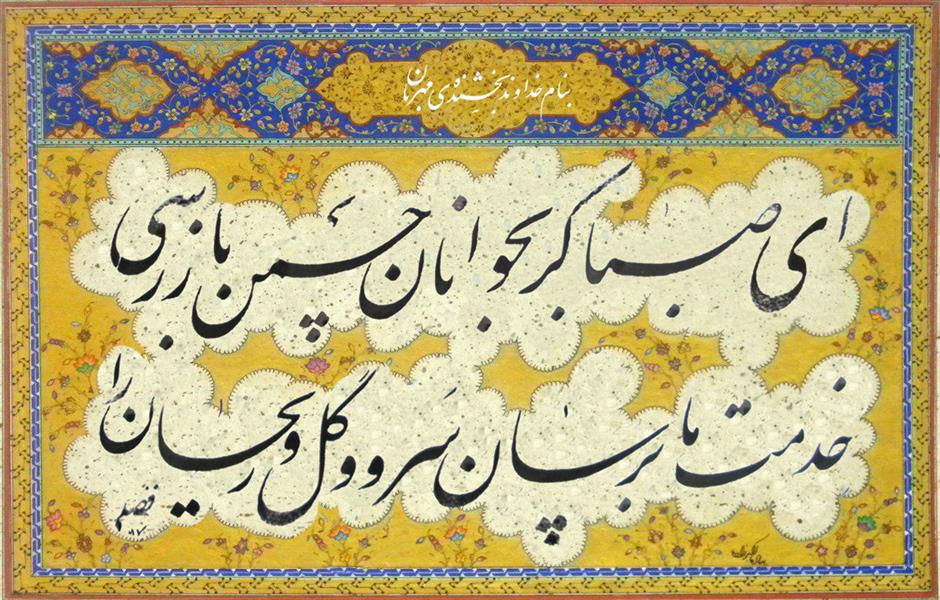 بنام خداوند بخشنده‌ی مهربان
ای صبا گر بجوانان چمن باز رسی
خدمت ما برسان سرو و گل و ریحان را